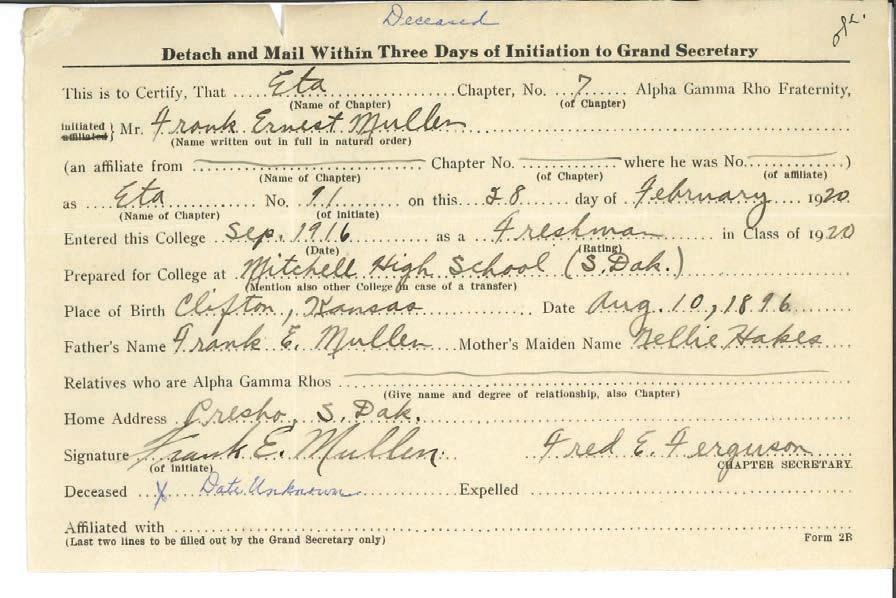 Deceased
Detach and Mail Within Three Days of Initiation to Grand Secretary
This is to Certify, That Eta Chapter, No. 7 Alpha Gamma Rho Fraternity,
(Name of Chapter) (of Chapter)
initiated affiliated } Mr. Frank Ernest Mullen
(Name written out in full in natural order)
(an affiliate from Chapter No. where he was No. )
(Name of Chapter) (of Chapter) (of affiliate)
as Eta No. 91 on this 28 day of February 1920
(Name of Chapter) (of initiate)
Entered this College Sep. 1916 as a Freshman in Class of 1920
(Date) (Rating)
Prepared for College at Mitchell High School (S. Dak.)
(Mention also other College in case of a transfer)
Place of Birth Clifton, Kansas Date Aug. 10, 1896
Father's Name Frank E. Mullen Mother's Maiden Name Nellie Hakes
Relatives who are Alpha Gamma Rhos
(Give name and degree of relationship, also Chapter)
Home Address Presho, S. Dak.
Signature Frank E. Mullen Fred E. Ferguson
(of initiate) CHAPTER SECRETARY.
Deceased X Date Unknown Expelled
Affiliated with
(Last two lines to be filled out by the Grand Secretary only) Form 2B